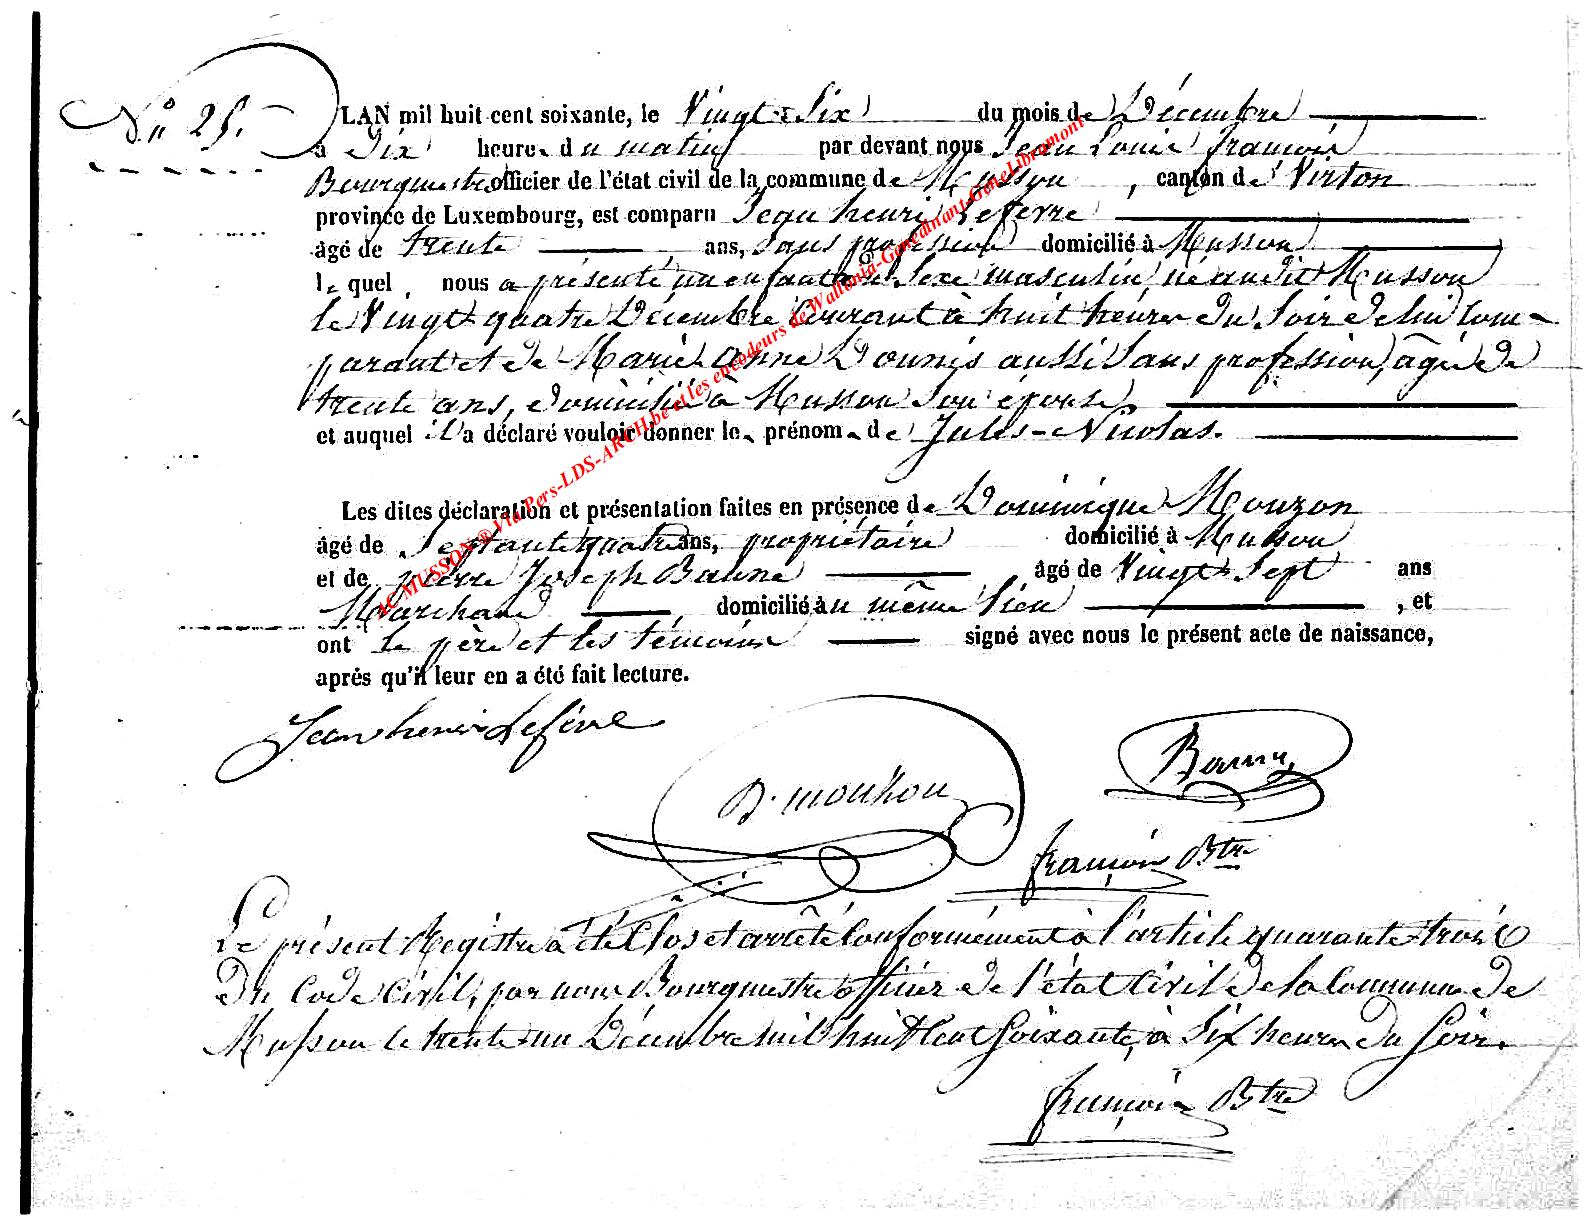 N° 25.
LAN mil huit cent soixante, le Vingt-Six du mois de Décembre
à Dix heures du matin par devant nous Jean Louis françois
Bourgmestre officier de l'état civil de la commune de Musson, canton de Virton
province de Luxembourg, est comparu Jean henri Lefevre
âgé de trente ans, Sans profession domicilié à Musson
lequel nous a présenté un enfant de Sexe masculin, né audit Musson
le Vingt-quatre Décembre Courant à huit heures du Soir de lui Com-
parant et de Marie-Anne Dounis aussi Sans profession, âgée de
trente ans, domicilié à Musson Son épouse,
et auquel il a déclaré vouloir donner les prénoms de Jules-Nicolas.
Les dites déclaration et présentation faites en présence de Dominique Mouzon
âgé de Septante quatre ans, propriétaire domicilié à Musson
et de pierre Joseph Baune âgé de Vingt-Sept ans
Marchand, domicilié au même lieu, et
ont le père et les témoins signé avec nous le présent acte de naissance,
après qu'il leur en a été fait lecture.
Jean henri Lefèvre
D. mouzon
Baune
françois Btre
Le présent Registre a été Clos et arrêté Conformément à l'article quarante-trois
du Code Civil, par nous Bourgmestre officier de l'état Civil de la Commune de
Musson le trente un Décembre mil huit Cent Soixante, à Six heures du Soir.
françois Btre
AC MUSSON® Via Pers-LDS-ARCH.be et les encodeurs de Wallonia-Genedinant-GeneLibramont